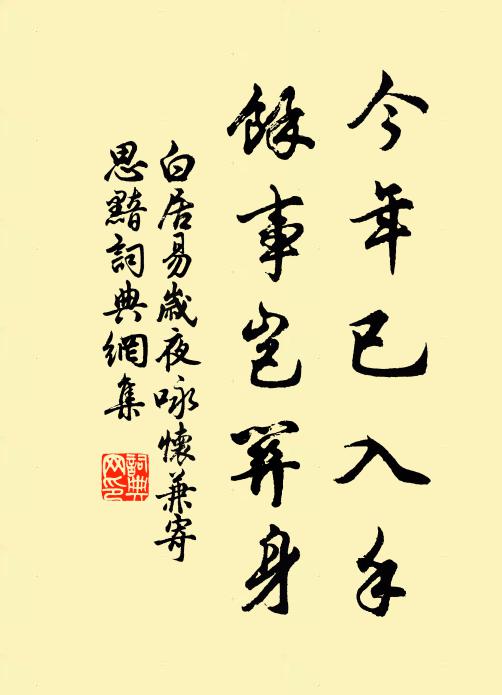 今年已入手
餘事豈關身
白居易歲夜咏懷兼寄
思黯詞典網集
詞典網印